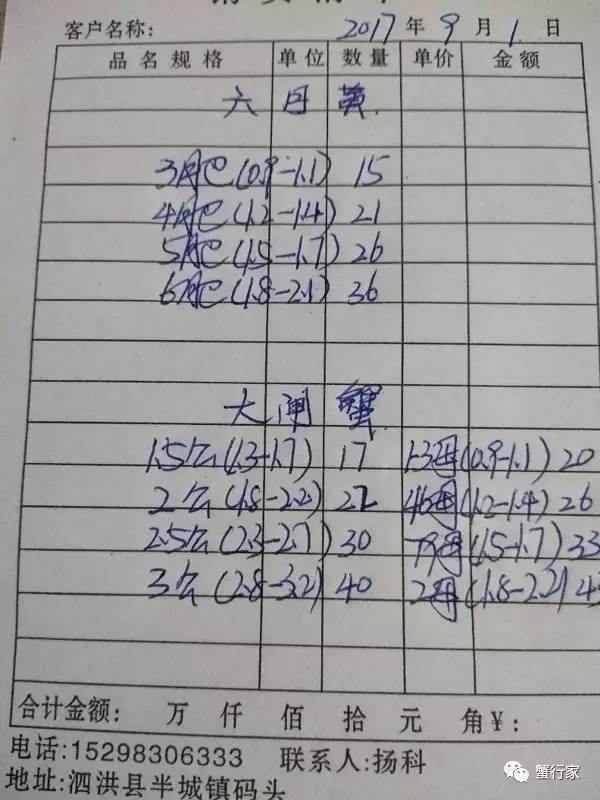 客户名称: 2017 年 9 月 1 日
品名规格 单位 数量 单价 金额
六月黄
3月巴(0.9-1.1) 15
4月巴(1.2-1.4) 21
5月巴(1.5-1.7) 26
6月巴(1.8-2.1) 36
大闸蟹
1.5公(1.3-1.7) 17 母(0.9-1.1) 20
2公(1.8-2.2) 22 母(1.2-1.4) 26
2.5公(2.3-2.7) 30 母(1.5-1.7) 33
3公(2.8-3.2) 40 2母(1.8-2.2)
合计金额: 万 仟 佰 拾 元 角 ¥:
电话:15298306333 联系人:扬科
地址:泗洪县半城镇码头
蟹行家